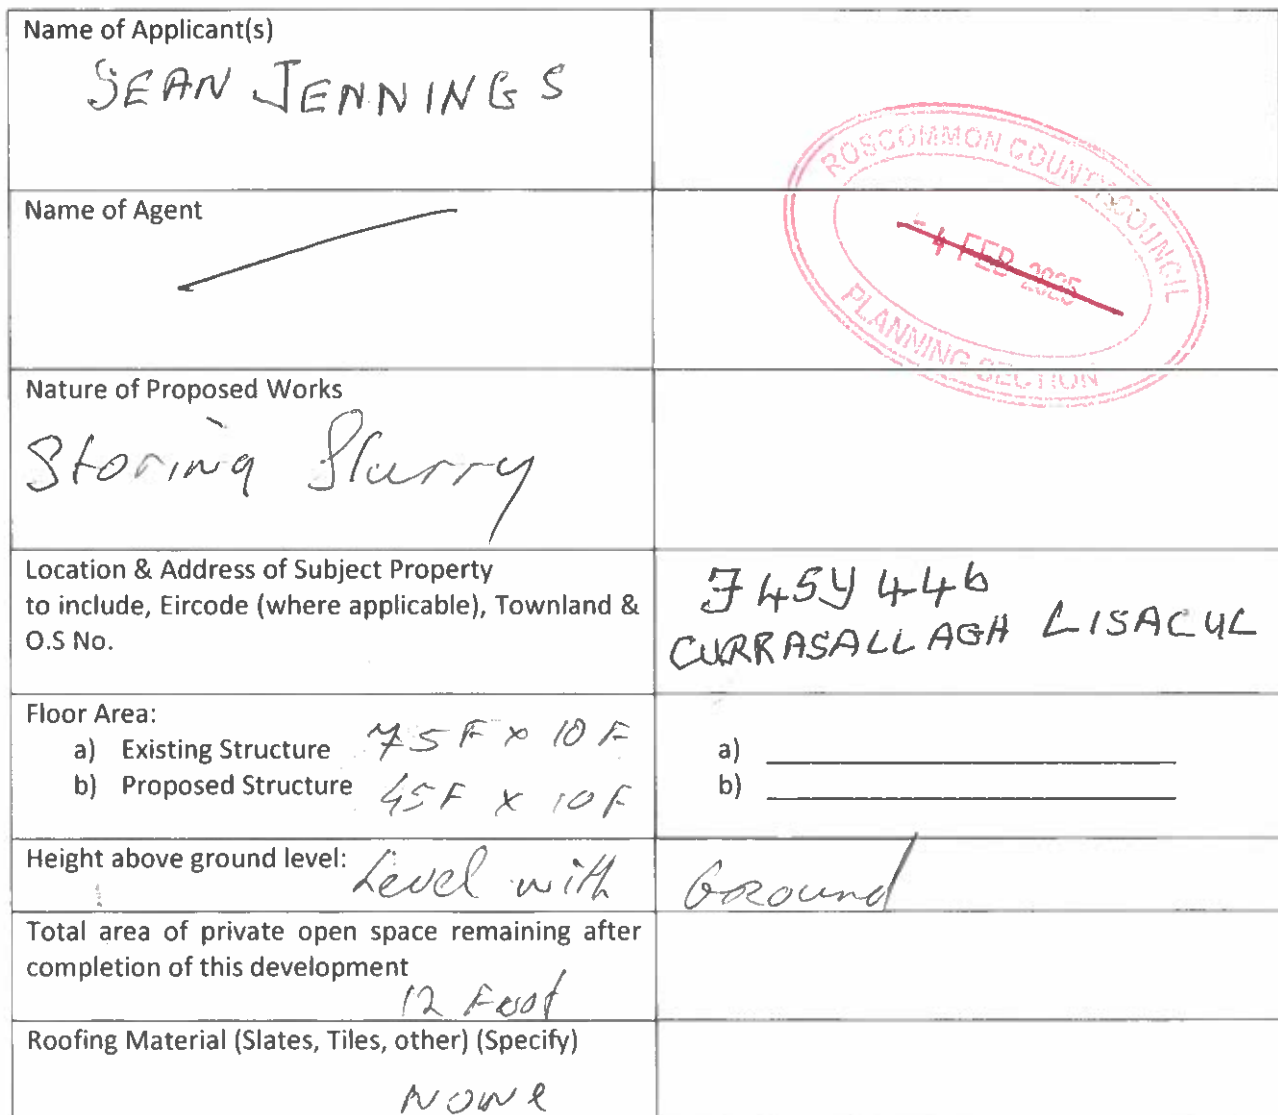 Name of Applicant(s)
SEAN JENNINGS
ROSCOMMON COUNTY COUNCIL
- 4 FEB 2025
PLANNING SECTION
Name of Agent
Nature of Proposed Works
Storing Slurry
Location & Address of Subject Property
to include, Eircode (where applicable), Townland &
O.S No.
F45Y446
CURRASALLAGH LISACUL
Floor Area:
a) Existing Structure 75F x 10F
b) Proposed Structure 45F x 10F
a)
b)
Height above ground level: Level with Ground
Total area of private open space remaining after
completion of this development
12 Foot
Roofing Material (Slates, Tiles, other) (Specify)
NONe